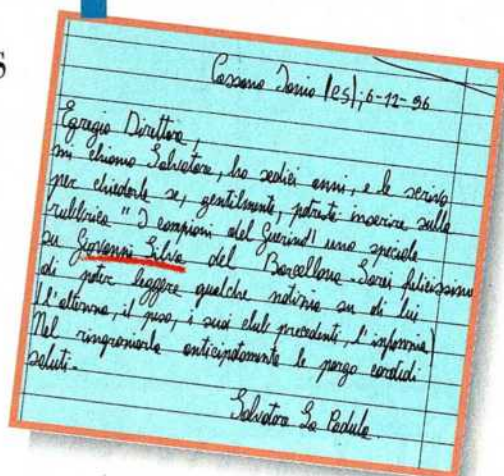 S
Cassano Ionio (CS); 6-12-96
Egregio Direttore,
mi chiamo Salvatore, ho sedici anni, e le scrivo
per chiederle se, gentilmente, potreste inserire sulla
rubbrica "I campioni del Guerino" uno speciale
su Giovanni Silva del Barcellona. Sarei felicissimo
di poter leggere qualche notizia su di lui
(l'altezza, il peso, i suoi club precedenti, l'infanzia)
Nel ringraziarla anticipatamente le porgo cordiali
saluti.
Salvatore La Padula